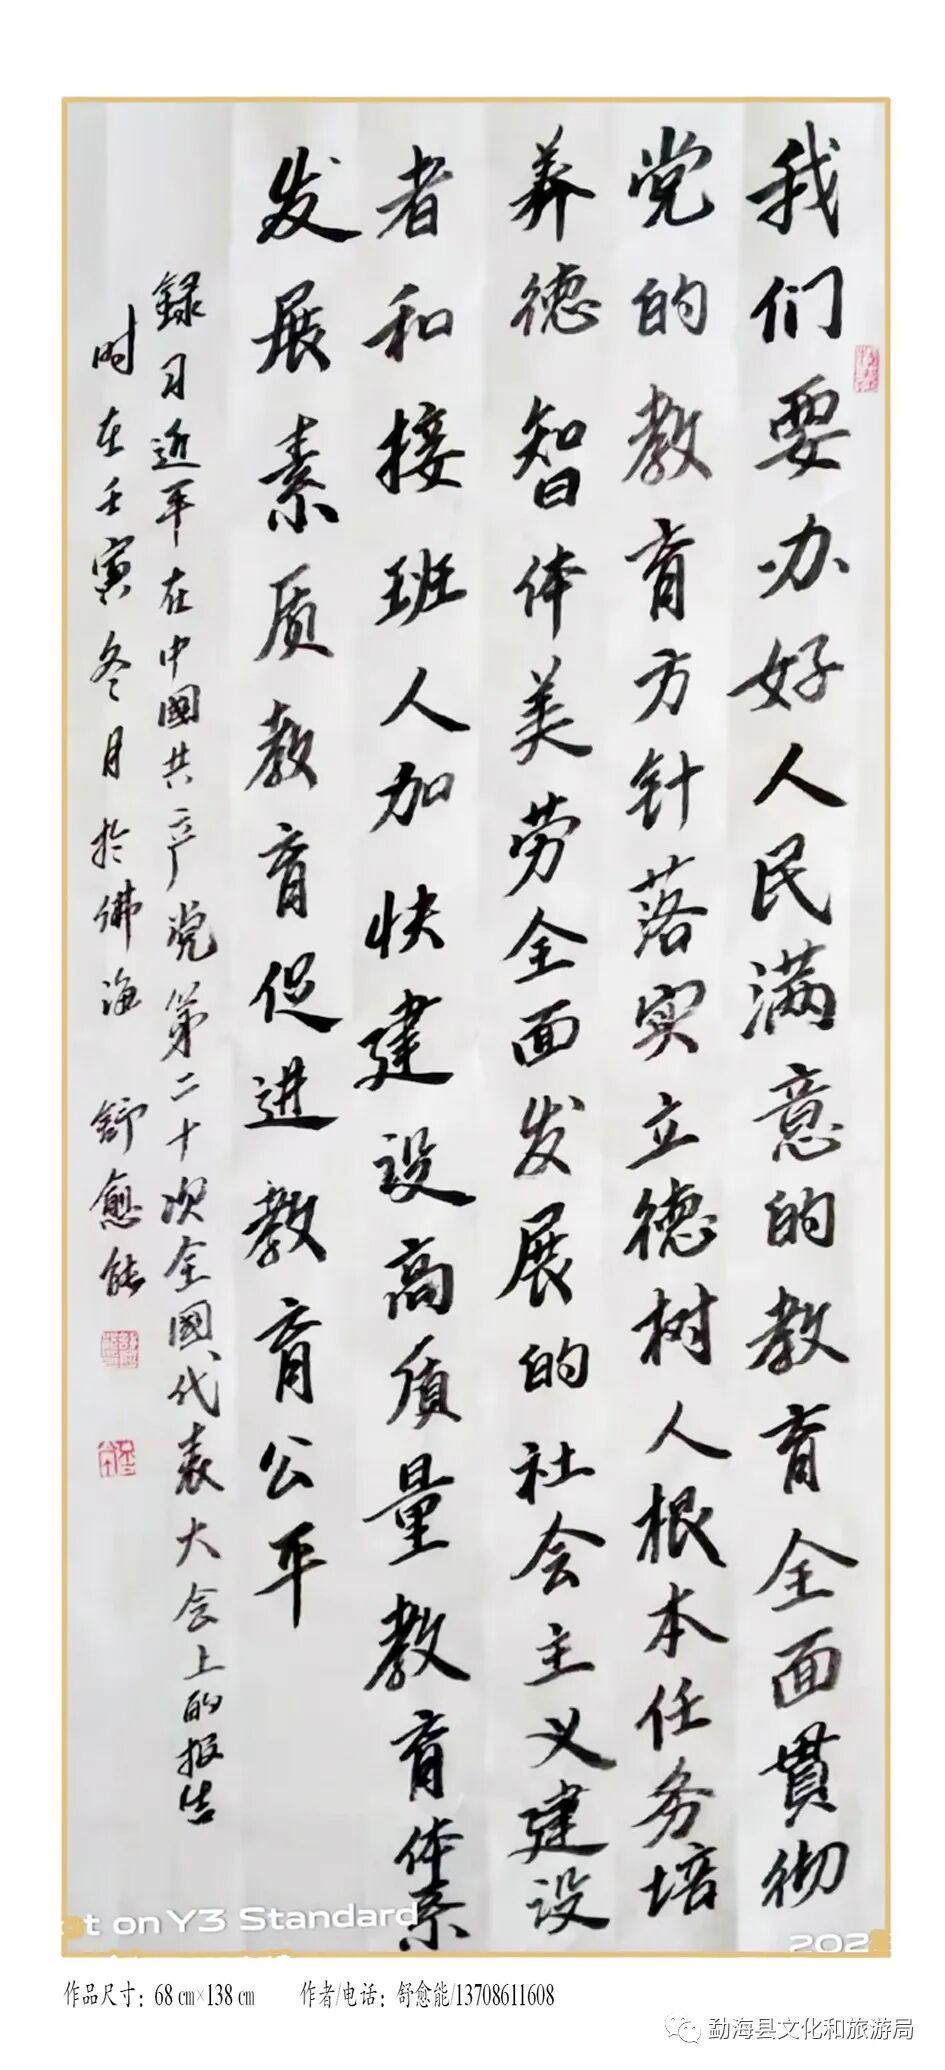 我们要办好人民满意的教育全面贯彻
党的教育方针落实立德树人根本任务培
养德智体美劳全面发展的社会主义建设
者和接班人加快建设高质量教育体系
发展素质教育促进教育公平
録习近平在中國共产党第二十次全國代表大会上的报告
时在壬寅冬月於佛海 舒愈能
t on Y3 Standard
202
作品尺寸：68 cm×138 cm 作者/电话：舒愈能/13708611608
勐海县文化和旅游局